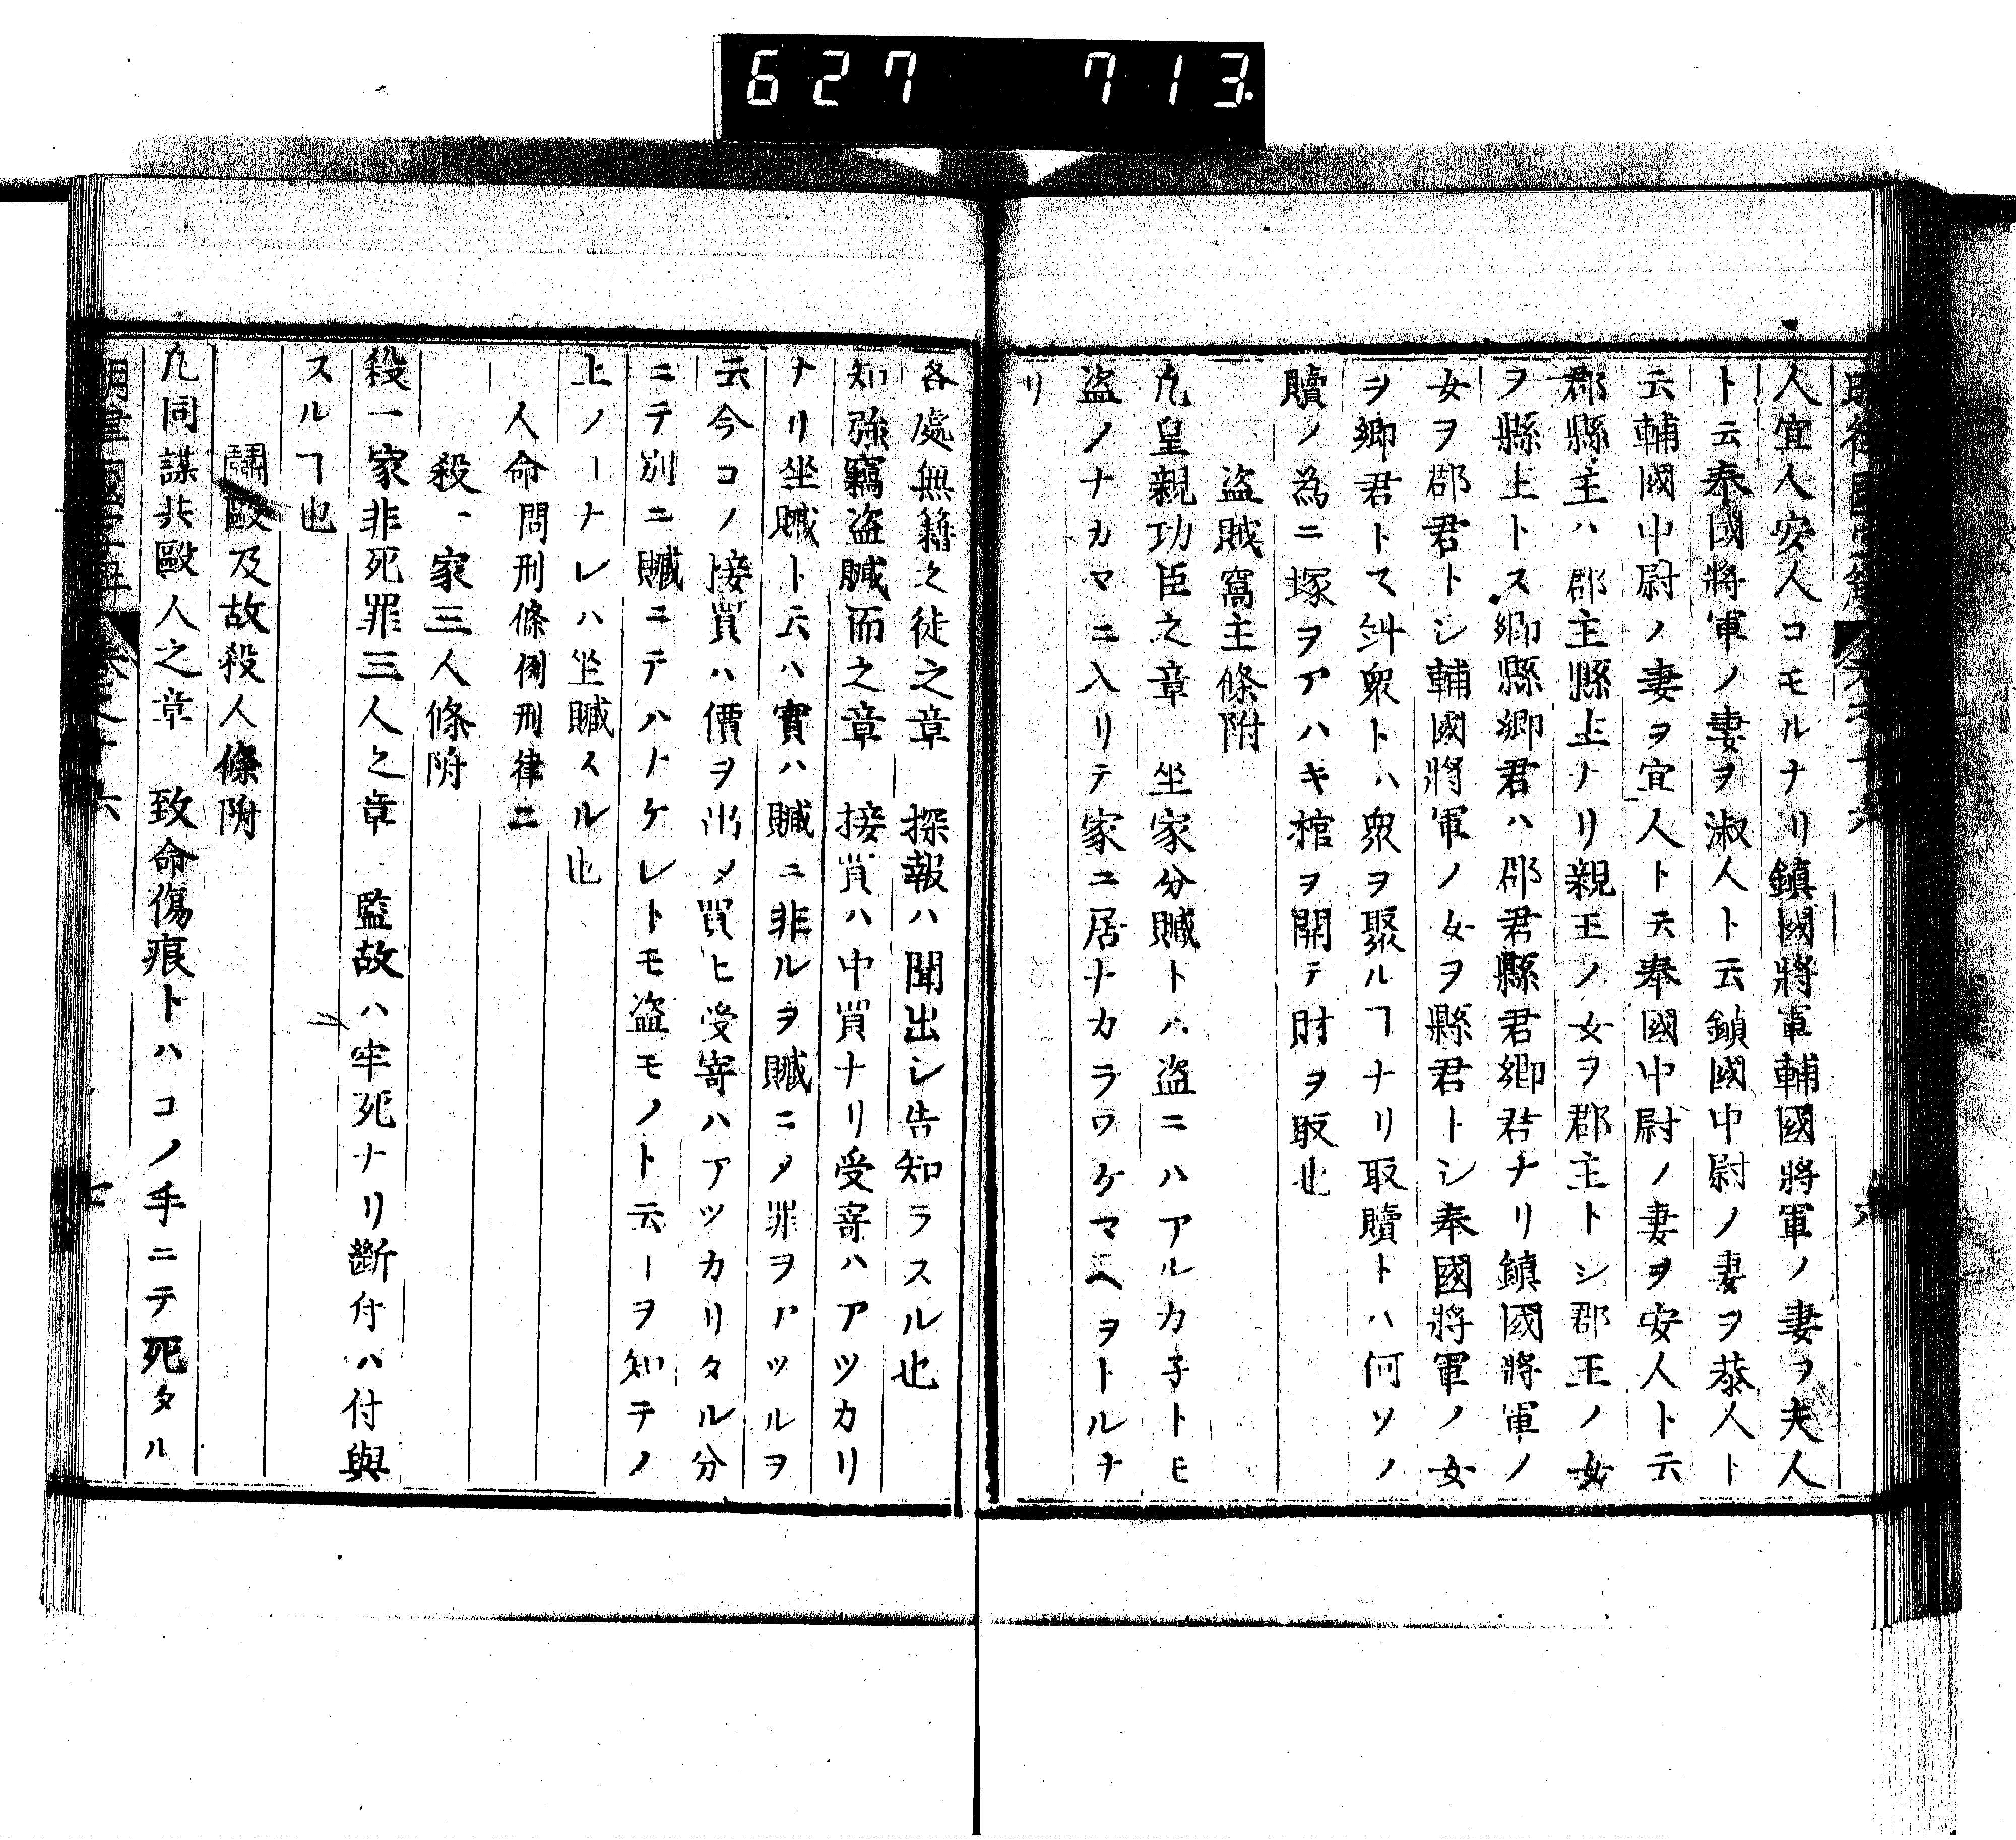 627 713
人宜人安人コモルナリ鎮國將軍輔國將軍ノ妻ヲ夫人
ト云奉國將軍ノ妻ヲ淑人ト云鎮國中尉ノ妻ヲ恭人ト
云輔國中尉ノ妻ヲ宜人ト云奉國中尉ノ妻ヲ安人ト云
郡縣主ハ郡主縣主ナリ親王ノ女ヲ郡主トシ郡王ノ女
ヲ縣主トス郷縣郷君ハ郡君縣君郷君ナリ鎮國將軍ノ
女ヲ郡君トシ輔國將軍ノ女ヲ縣君トシ奉國將軍ノ女
ヲ郷君トス糾衆トハ衆ヲ聚ルヿナリ取贖トハ何ソノ
贖ノ為ニ塚ヲアハキ棺ヲ開テ財ヲ取也
盗賊窩主條附
凢皇親功臣之章 坐家分贓トハ盗ニハアルカ子トモ
盗ノナカマニ入リテ家ニ居ナカラワケマヘヲトルナ
リ
各處無籍之徒之章 探報ハ聞出シ告知ラスル也
知強竊盗贓而之章 接買ハ中買ナリ受寄ハアツカリ
ナリ坐贓ト云ハ實ハ贓ニ非ルヲ贓ニタ罪ヲアツルヲ
云今コノ接買ハ價ヲ出メ買ヒ受寄ハアツカリタル分
ニテ別ニ贓ニテハナケレトモ盗モノト云ーヲ知テノ
上ノーナレハ坐贓スル也
人命問刑條例刑律ニ
殺一家三人條附
殺一家非死罪三人之章 監故ハ牢死ナリ斷付ハ付與
スルヿ也
鬪毆及故殺人條附
凢同謀共毆人之章 致命傷痕トハコノ手ニテ死タル